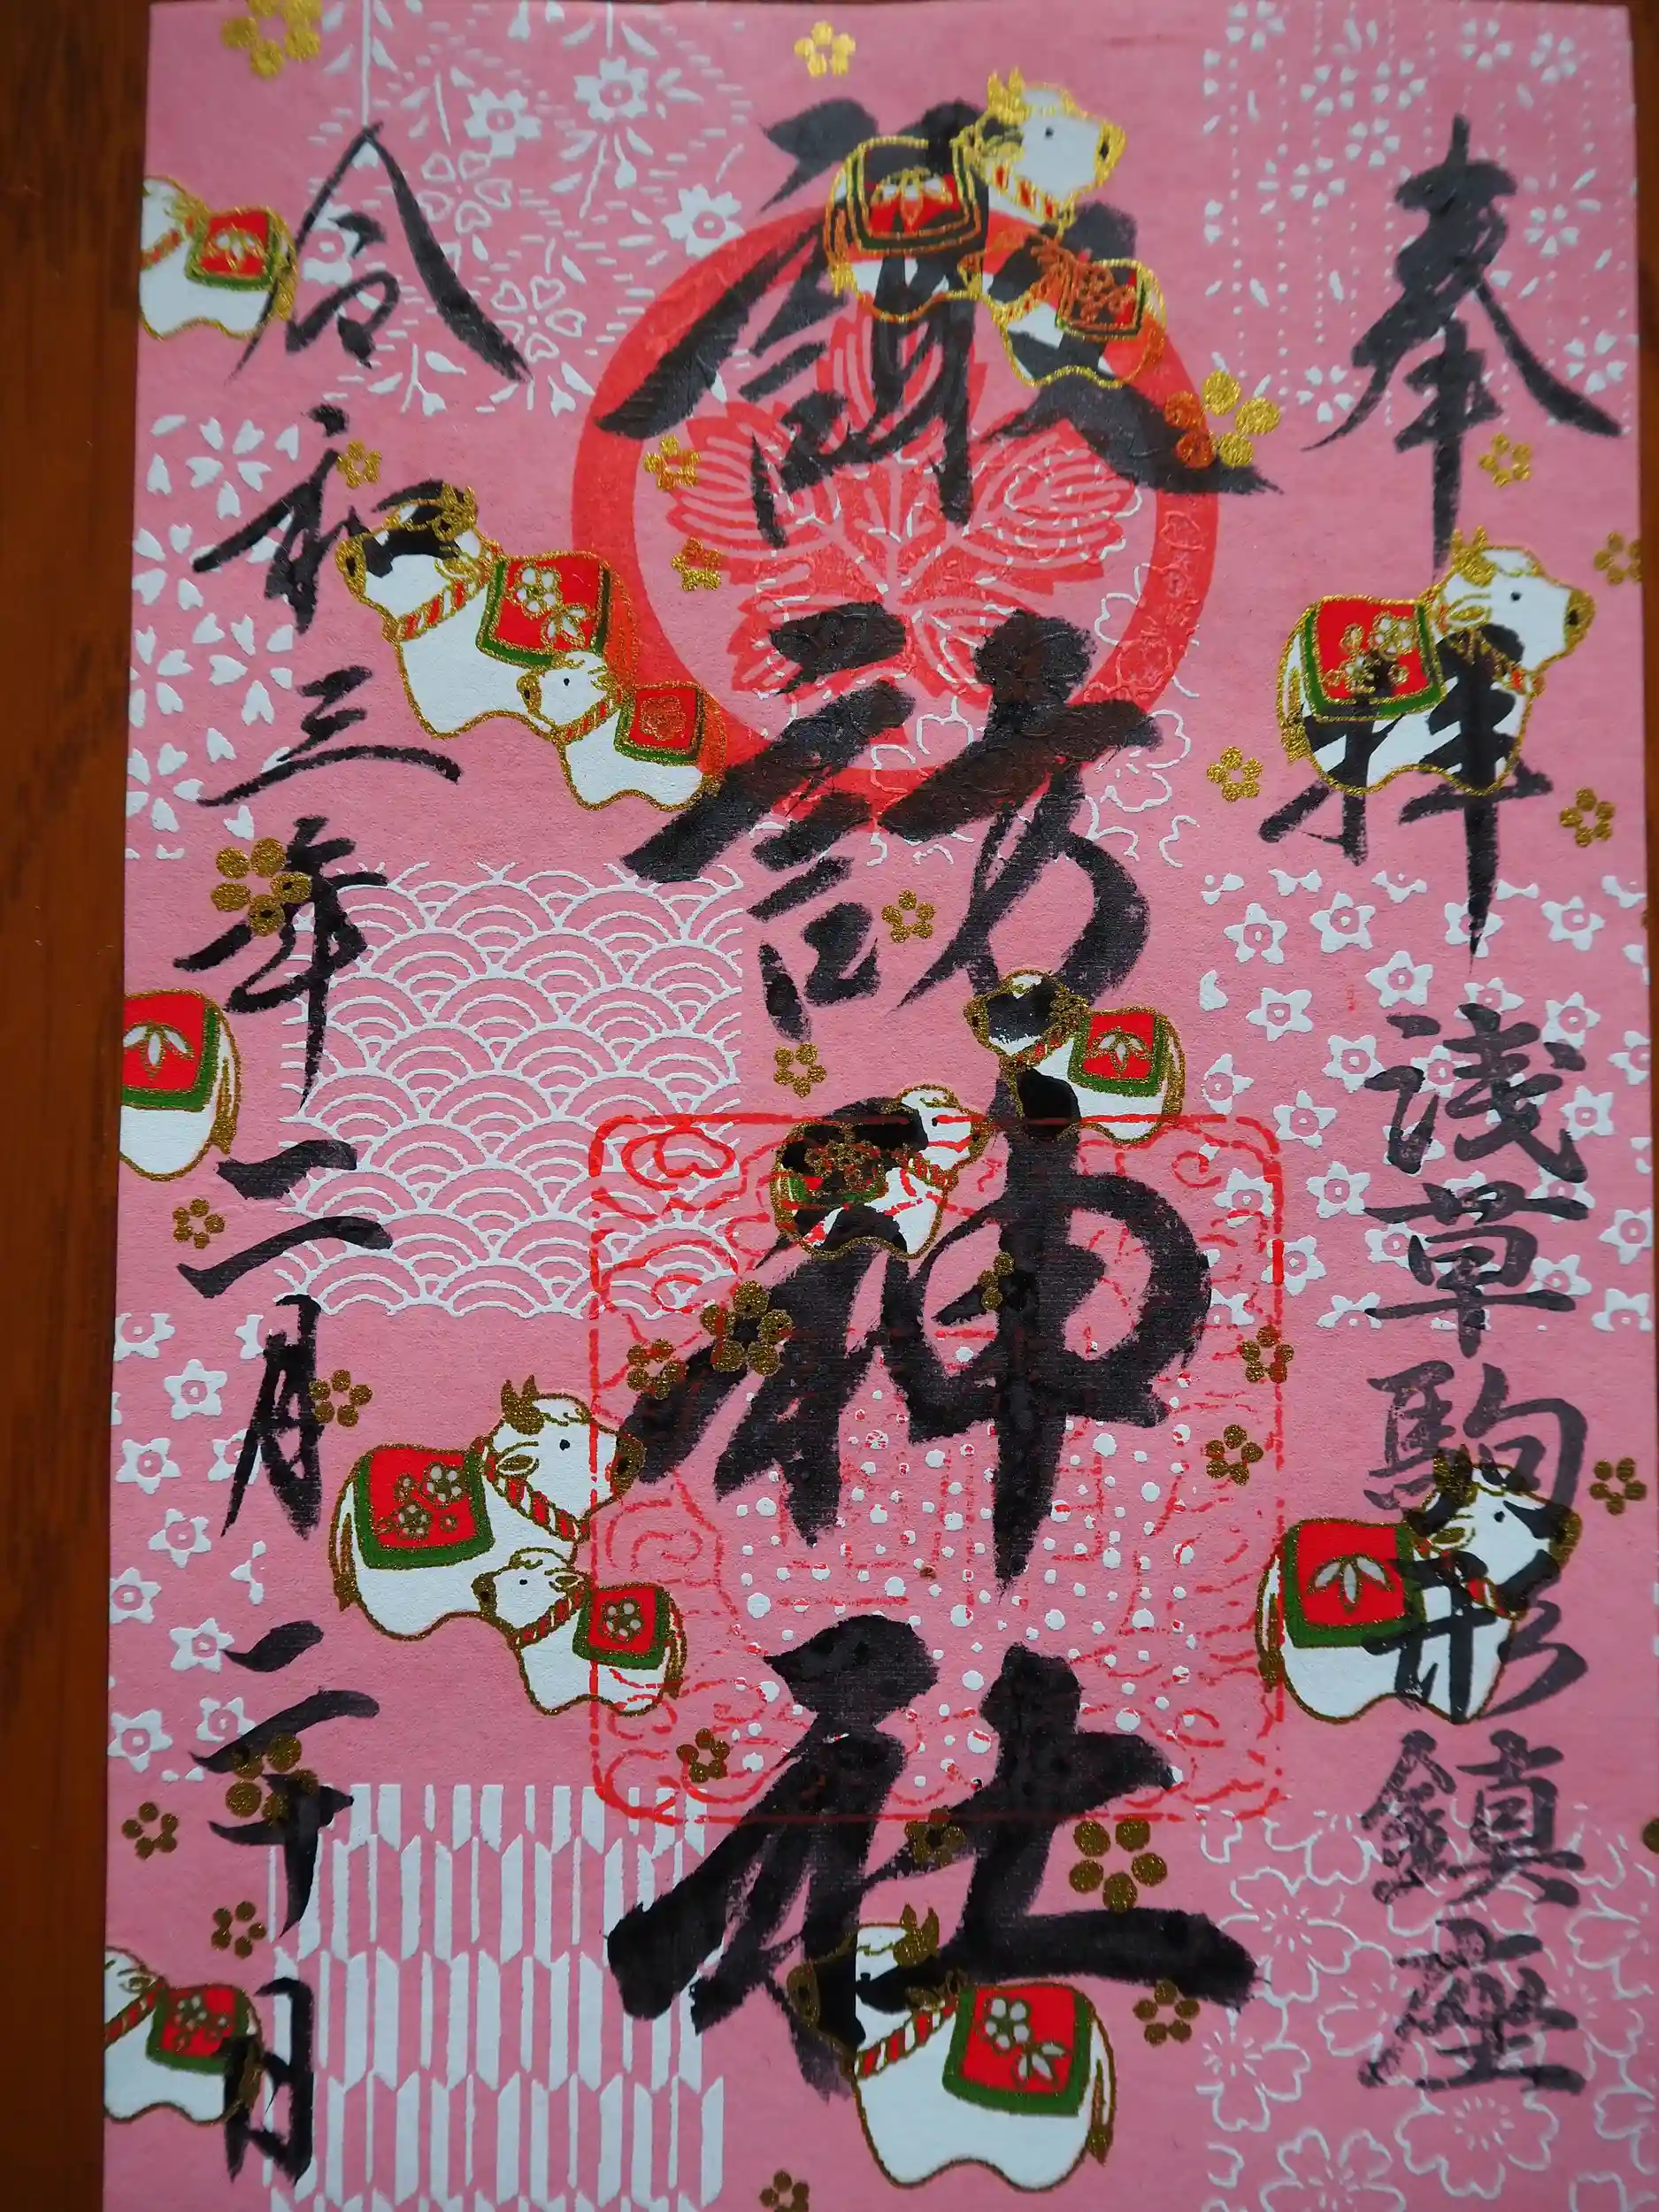 奉拝
浅草駒形鎮座
諏訪神社
令和三年二月二十日